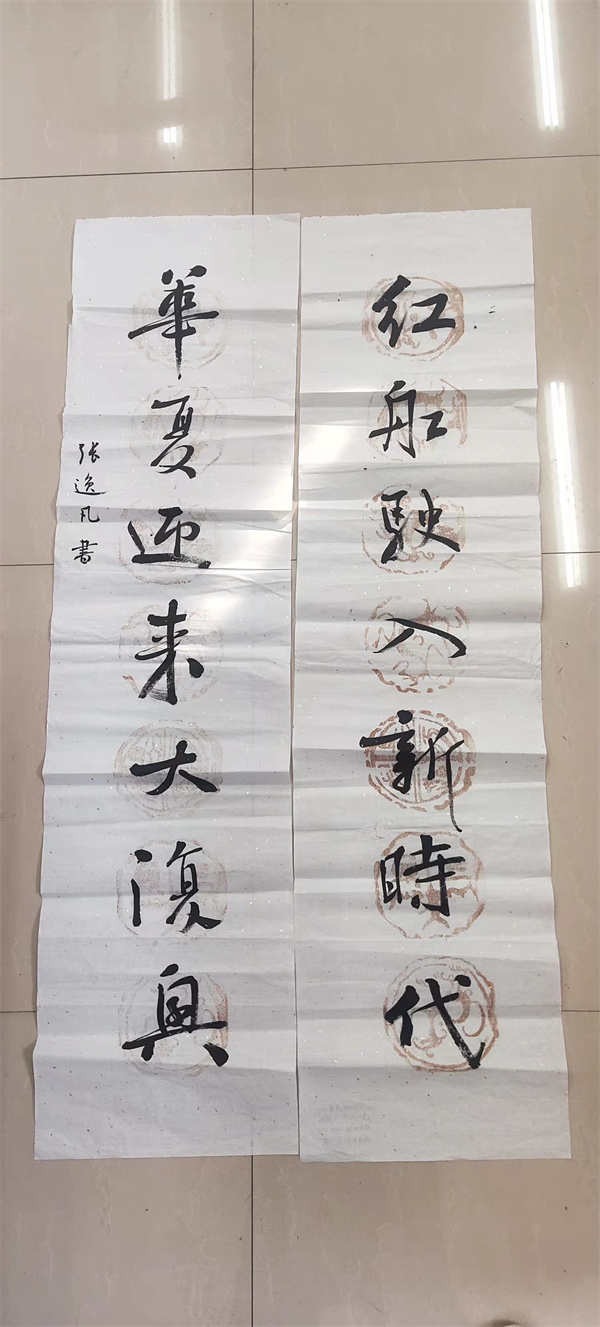 红船駛入新時代
華夏迎来大復興
张逸凡書